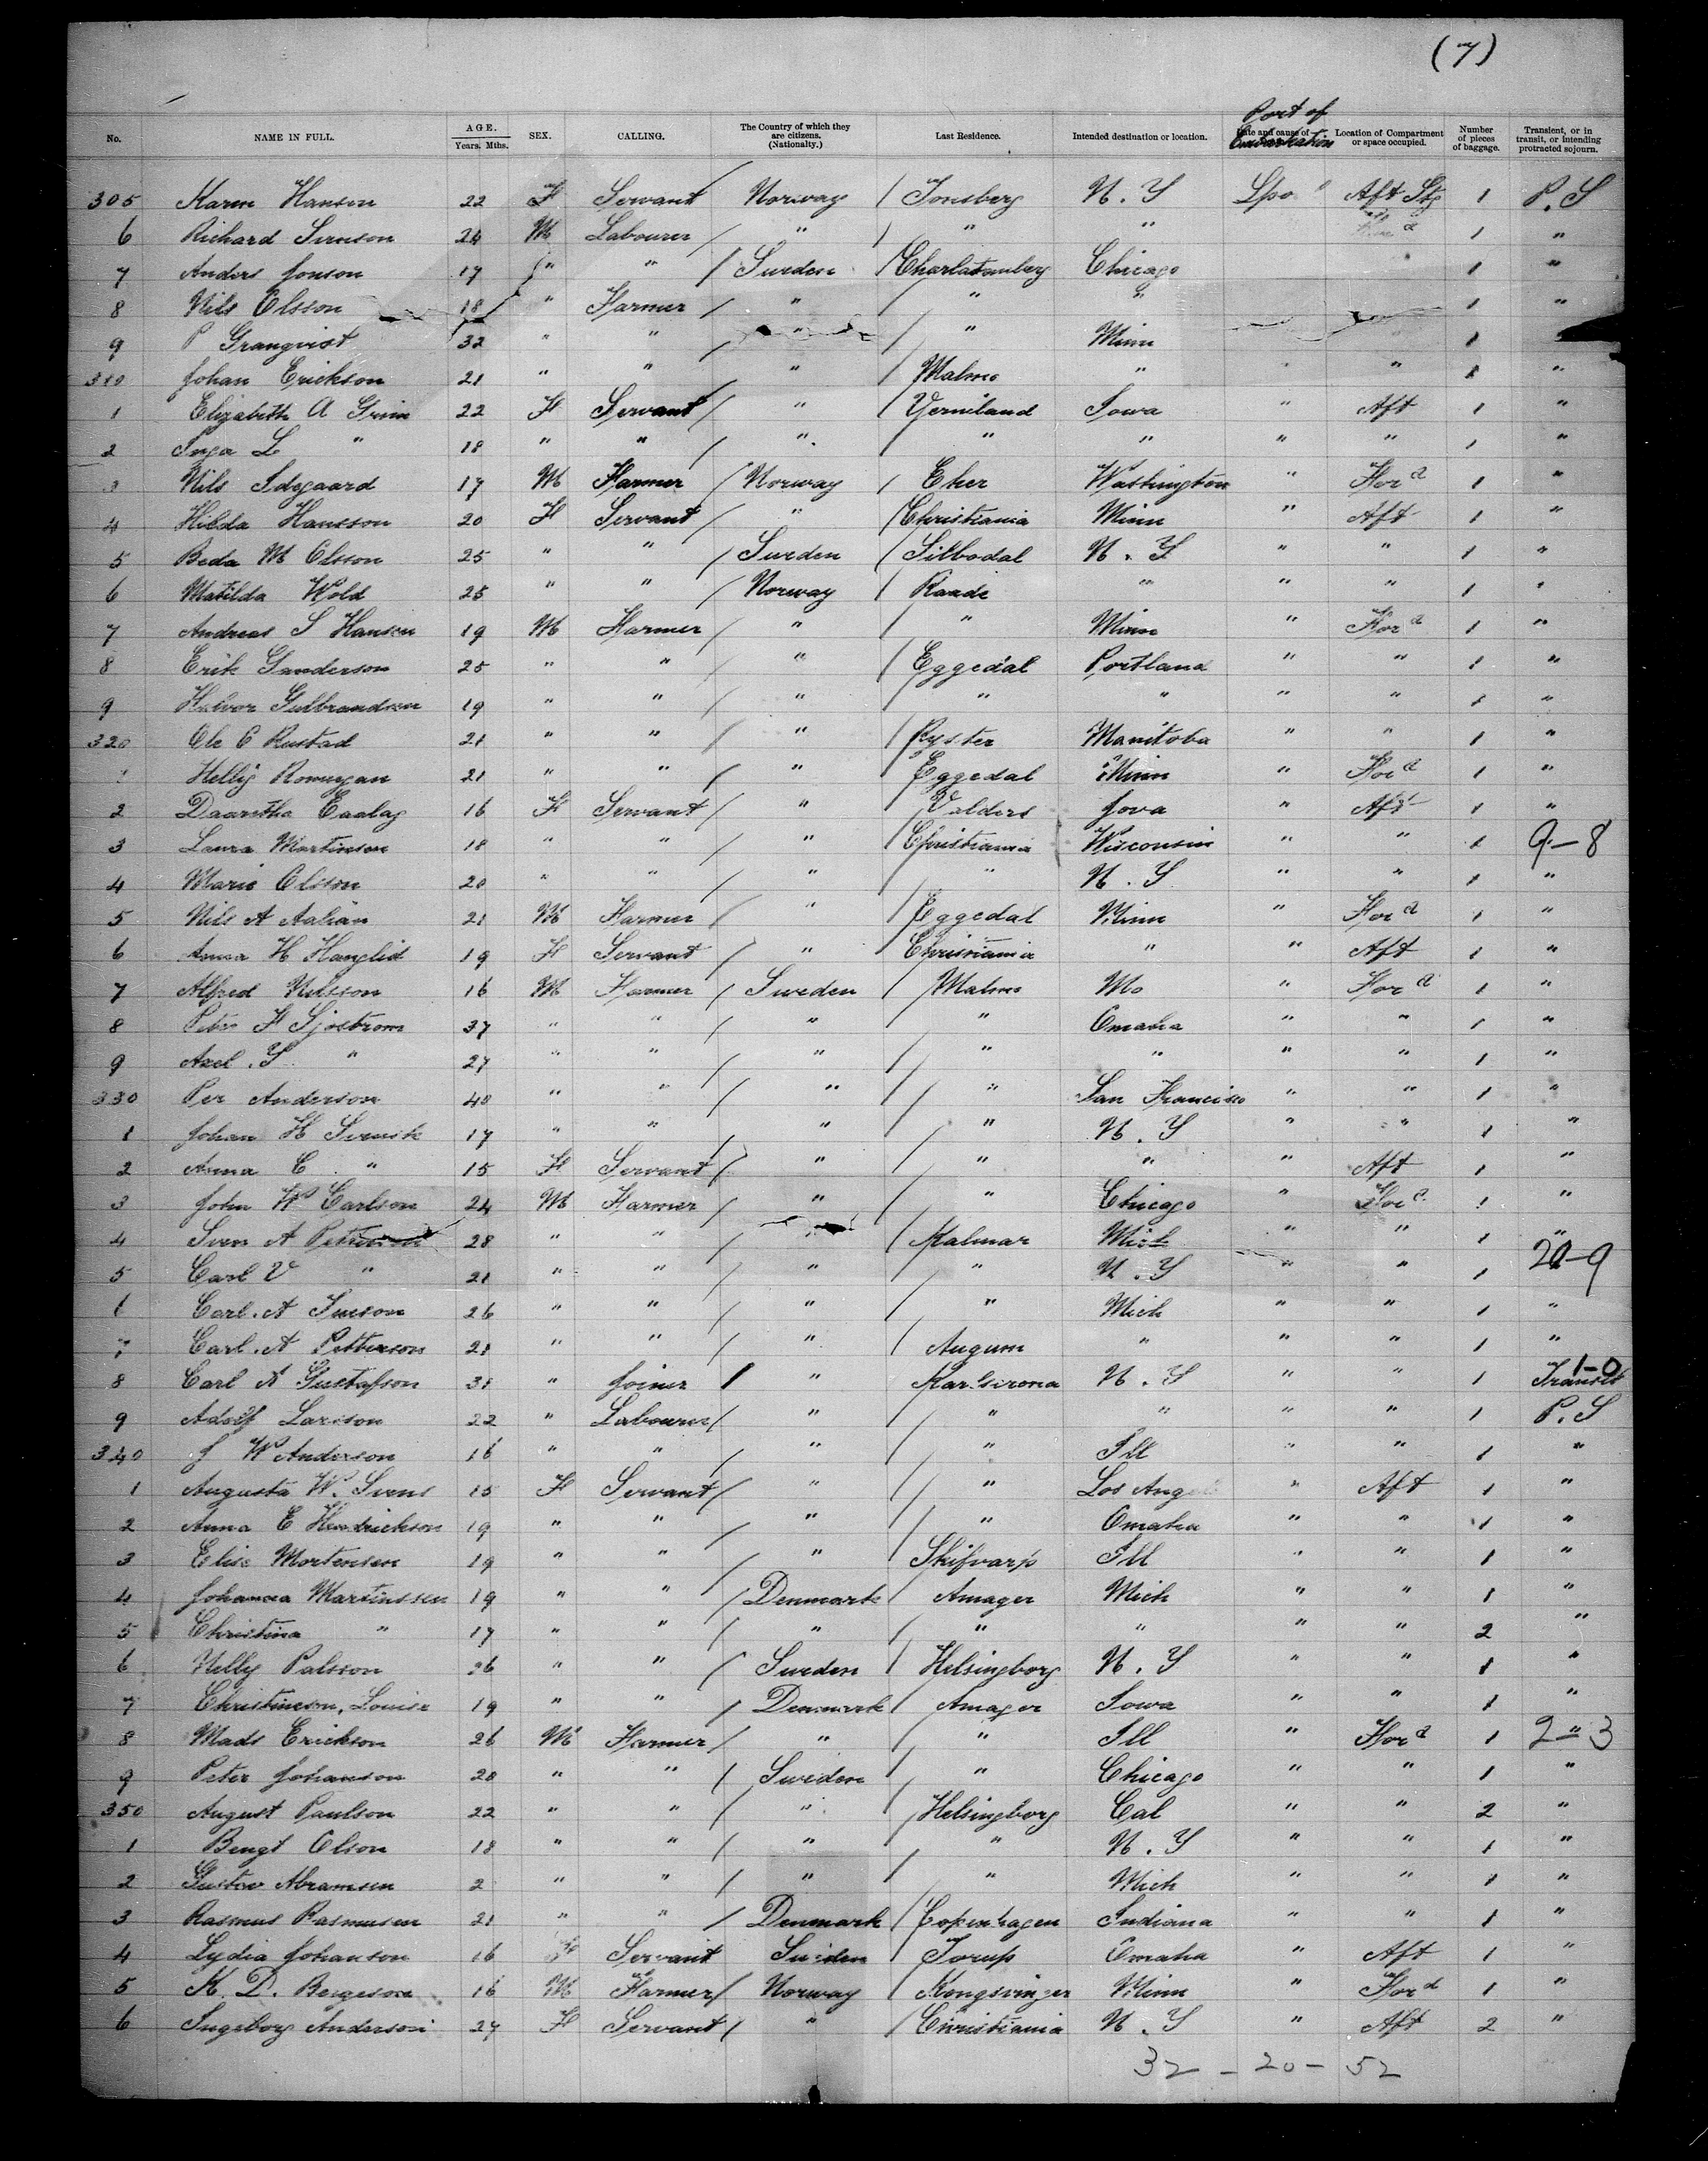 (7)
Port of
Embarkation
No. NAME IN FULL. AGE. Years. Mths. SEX. CALLING. The Country of which they are citizens. (Nationalty.) Last Residence. Intended destination or location. Date and cause of Location of Compartment or space occupied. Number of pieces of baggage. Transient, or in transit, or intending protracted sojourn.
305 Karen Hansen 22 F Servant / Norway / Tonsberg N. Y Lpo " Aft Stg 1 P. S
6 Richard Simson 24 M Labourer / " / " " 1 "
7 Anders Jonson 17 " " / Sweden / Charlatanberg Chicago 1 "
8 Nils Olsson 18 " Farmer / " / " " 1 "
9 P Granqvist 32 " " / " / " Minn 1 "
310 Johan Erickson 21 " " / " / Malmo " " " 1 "
1 Elizabeth A Grim 22 F Servant / " / Vermland Iowa " Aft 1 "
2 Inga L " 18 " " / " / " " " " 1 "
3 Nils Idegaard 17 M Farmer / Norway / Eker Washington " For d 1 "
4 Hilda Hansson 20 F Servant / " / Christiania Minn " Aft 1 "
5 Beda M Olsson 25 " " / Sweden / Silbodal N. Y " " 1 "
6 Matilda Wold 25 " " / Norway / Raade " " " 1 "
7 Andreas S Hansen 19 M Farmer / " / " Minn " For d 1 "
8 Erik Ganderson 25 " " / " / Eggedal Portland " " 1 "
9 Halvor Gulbrandsen 19 " " / " / " " " " 1 "
320 Ole C Rustad 21 " " / " / Ryster Manitoba " " 1 "
1 Hellij 21 " " / " / Eggedal Minn " For d 1 "
2 16 F Servant / " / Valders Jova " Aft 1 "
3 Laura Martinsen 18 " " / " / Christiania Wisconsin " " 1 9-8
4 Marie Olsson 20 " " / " / " N. Y " " 1 "
5 Nils A Aalian 21 M Farmer / " / Eggedal Minn " For d 1 "
6 Anna H Hanglid 19 F Servant / " / Christiania " " Aft 1 "
7 Alfred Nilsson 16 M Farmer / Sweden / Malmo Mo " For d 1 "
8 Peter F Sjostrom 37 " " / " / " Omaha " " 1 "
9 Axel. Y " 27 " " / " / " " " " 1 "
330 Per Anderson 40 " " / " / " San Francisco " " 1 "
1 Johan H 17 " " / " / " N. Y " " 1 "
2 Anna C " 15 F Servant / " / " " " Aft 1 "
3 John W Carlson 24 M Farmer / " / " Chicago " For d 1 "
4 Sven A Peterson 28 " " / " / Kalmar Mich " " 1 "
5 Carl V " 21 " " / " / " N. Y " " 1 20-9
6 Carl. A 26 " " / " / " Mich " " 1 "
7 Carl. A Petterson 21 " " / " / Augum " " " 1 "
1-0
8 Carl A Gustafson 31 " Joiner / " / Karlscrona N. Y " " 1 Transit
9 Adolf Larison 22 " Labourer / " / " " " " 1 P. S
340 J W Anderson 16 " " / " / " Ill " " 1 "
1 Augusta W. Svens 15 F Servant / " / " Los Angel " Aft 1 "
2 Anna E Hendrickson 19 " " / " / " Omaha " " 1 "
3 Elise Mortensen 19 " " / " / Skifvarp Ill " " 1 "
4 Johanna Martinssen 19 " " / Denmark / Amager Mich " " 1 "
5 Christina " 17 " " / " / " " " " 2 "
6 Nelly Palsson 26 " " / Sweden / Helsingborg N. Y " " 1 "
7 Christineson, Louise 19 " " / Denmark / Amager Iowa " " 1 "
8 Mads Erickson 26 M Farmer / " / " Ill " For d 1 2-3
9 Peter Johanson 20 " " / Sweden / " Chicago " " 1 "
350 August Paulson 22 " " / " / Helsingborg Cal " " 2 "
1 Bengt Olson 18 " " / " / " N. Y " " 1 "
2 Gustav Abramsen 2 " " / " / " Mich " " 1 "
3 Rasmus Rasmusen 21 " " / Denmark / Copenhagen Indiana " " 1 "
4 Lydia Johanson 16 F Servant Sweden / Torup Omaha " Aft 1 "
5 K. D. Bergeson 16 M Farmer / Norway / Kongsvinger Minn " For d 1 "
6 Ingeborg Anderson 27 F Servant / " / Christiania N. Y " Aft 2 "
32 - 20 - 52